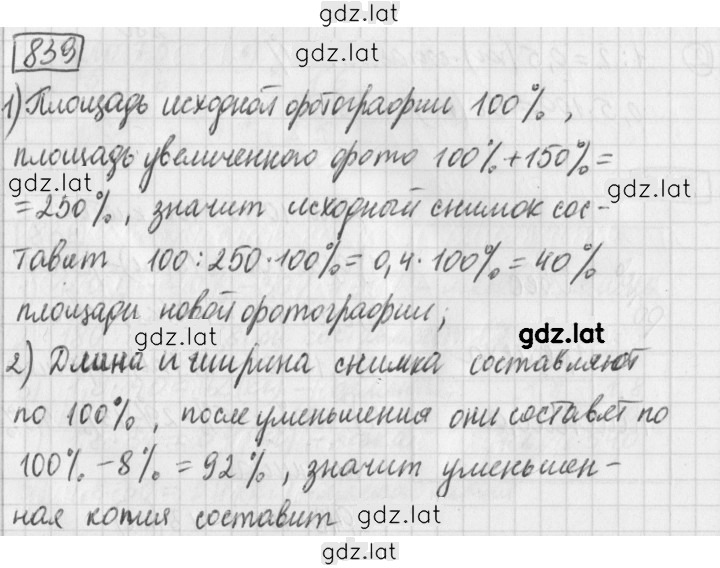 gdz.lat
839
1) Площадь исходной фотографии 100%,
площадь увеличенного фото 100%+150%=
gdz.lat
gdz.lat
=250%, значит исходный снимок сос-
тавит 100:250·100%=0,4·100%=40%
площади новой фотографии;
gdz.lat
gdz.lat
2) Длина и ширина снимка составляют
по 100%, после уменьшения они составят по
100%-8%=92%, значит уменьшен-
ная копия составит
gdz.lat
gdz.lat